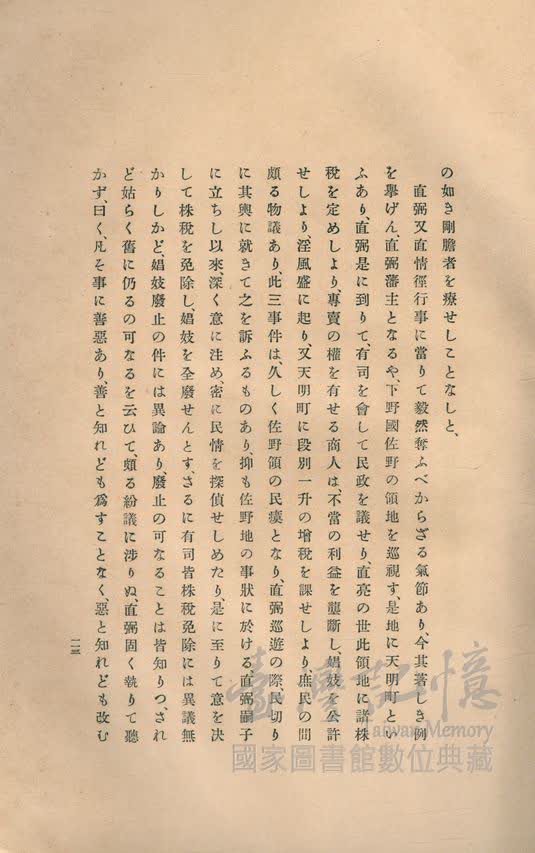 の如き剛膽者を療せしことなしと、
直弼又直情徑行事に當りて毅然奪ふべからざる氣節あり、今其著しき例
を擧げん、直弼藩主となるや、下野國佐野の領地を巡視す、是地に天明町とい
ふあり、直弼是に到りて、有司を會して民政を議せり、直亮の世此領地に諸株
稅を定めしより、專賣の權を有せる商人は、不當の利益を壟斷し、娼妓を公許
せしより、淫風盛に起り、又天明町に段別一升の增稅を課せしより、庶民の間
頗る物議あり、此三事件は、久しく佐野領の民瘼となり、直弼巡遊の際、民切り
に其輿に就きて之を訴ふるものあり、抑も佐野地の事狀に於ける直弼嗣子
に立ちし以來、深く意に注め、密に民情を探偵せしめたり、是に至りて意を決
して株稅を免除し、娼妓を全廢せんとす、さるに有司皆株稅免除には異議無
かりしかど、娼妓廢止の件には異論あり、廢止の可なることは皆知りつ、され
ど姑らく舊に仍るの可なるを云ひて、頗る紛議に涉りぬ、直弼固く執りて聽
かず、曰く、凡そ事に善惡あり、善と知れども爲すことなく、惡と知れども改む
二三
臺灣記憶
Taiwan Memory
國家圖書館數位典藏